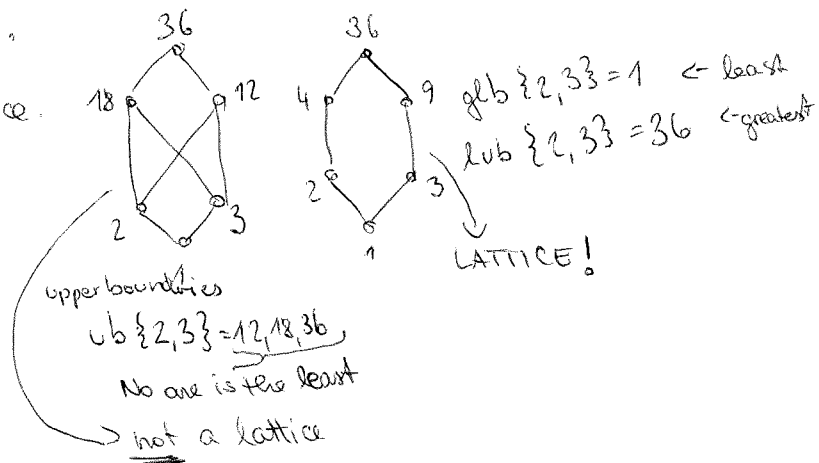 ce.
36
18
12
2
3
1
36
4
9
2
3
1
glb {2,3} = 1 ← least
lub {2,3} = 36 ← greatest
LATTICE!
upper boundries
ub {2,3} = 12, 18, 36
No one is the least
not a lattice